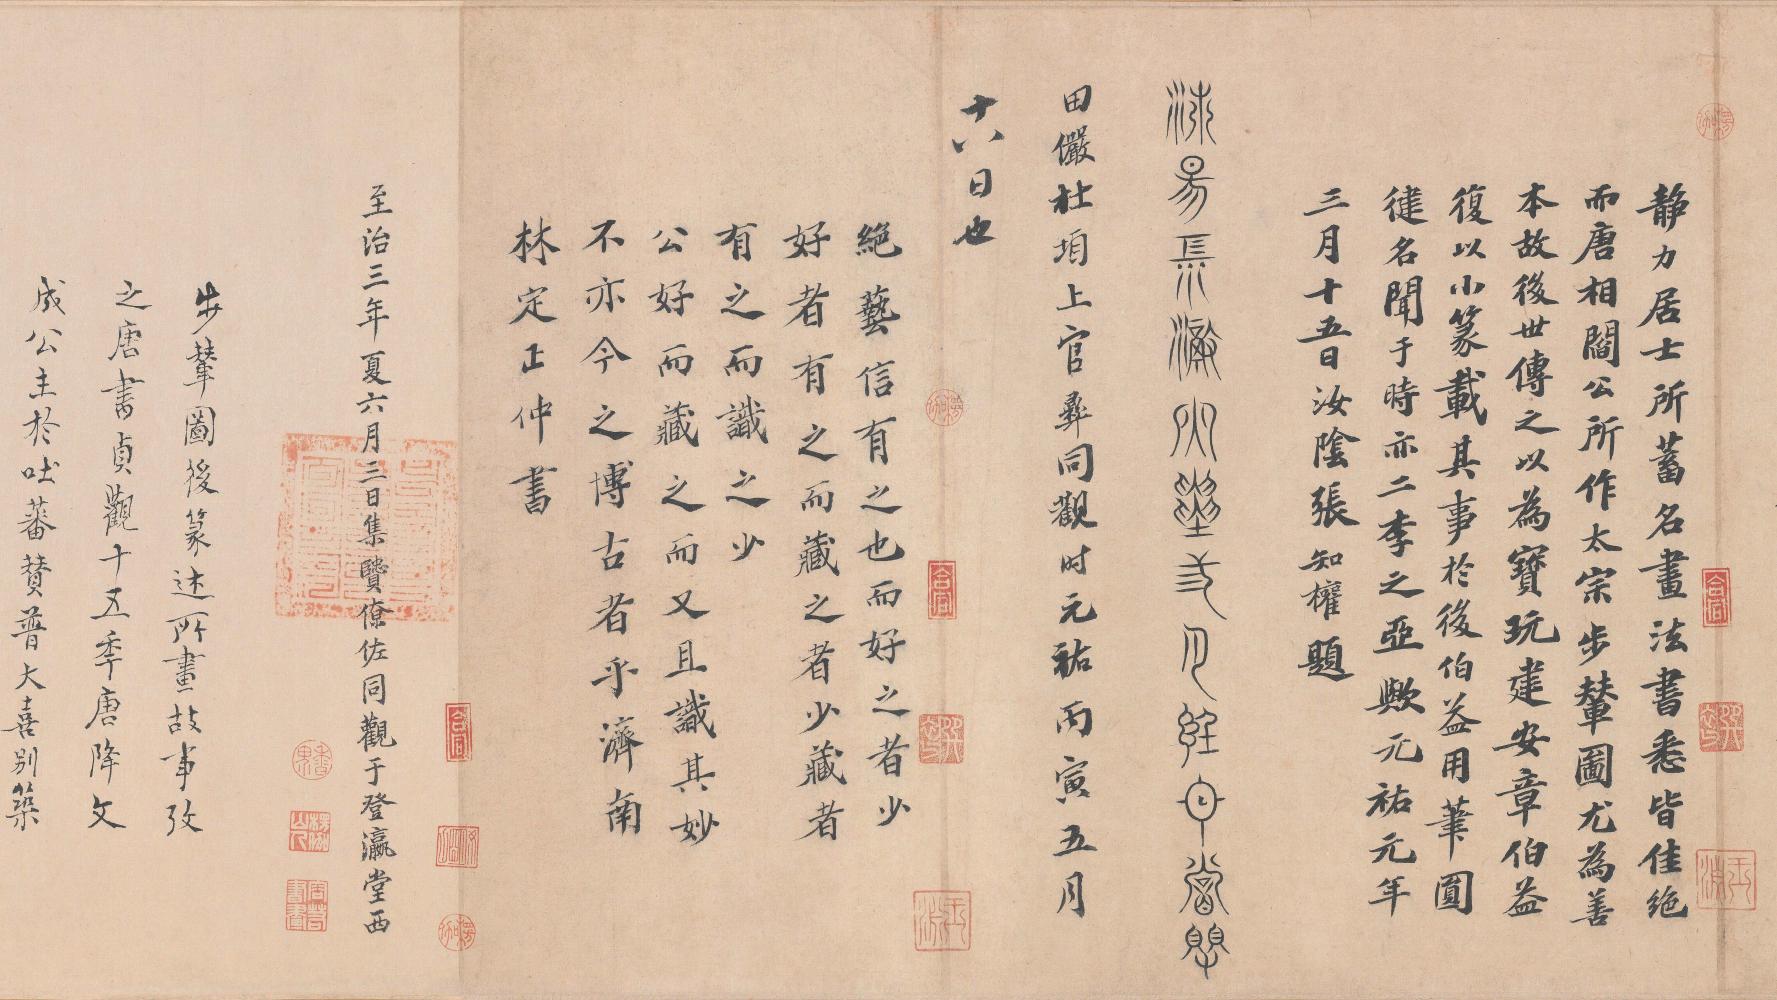 靜力居士所蓄名畫法書悉皆佳絕
而唐相閻公所作太宗步輦圖尤為善
本故後世傳之以為寶玩建安章伯益
復以小篆載其事於後伯益用筆圓
健名聞于時亦二李之亞歟元祐元年
三月十五日汝陰張知權題
田儼杜垍上官彞同觀时元祐丙寅五月
十八日也
絕藝信有之也而好之者少
好者有之而藏之者少藏者
有之而識之少
公好而藏之而又且識其妙
不亦今之博古者乎濟南
林定正仲書
至治三年夏六月三日集賢僚佐同觀于登瀛堂西
步輦圖後篆述所畫故事攷
之唐書貞觀十五季唐降文
成公主於吐蕃賛普大喜別築